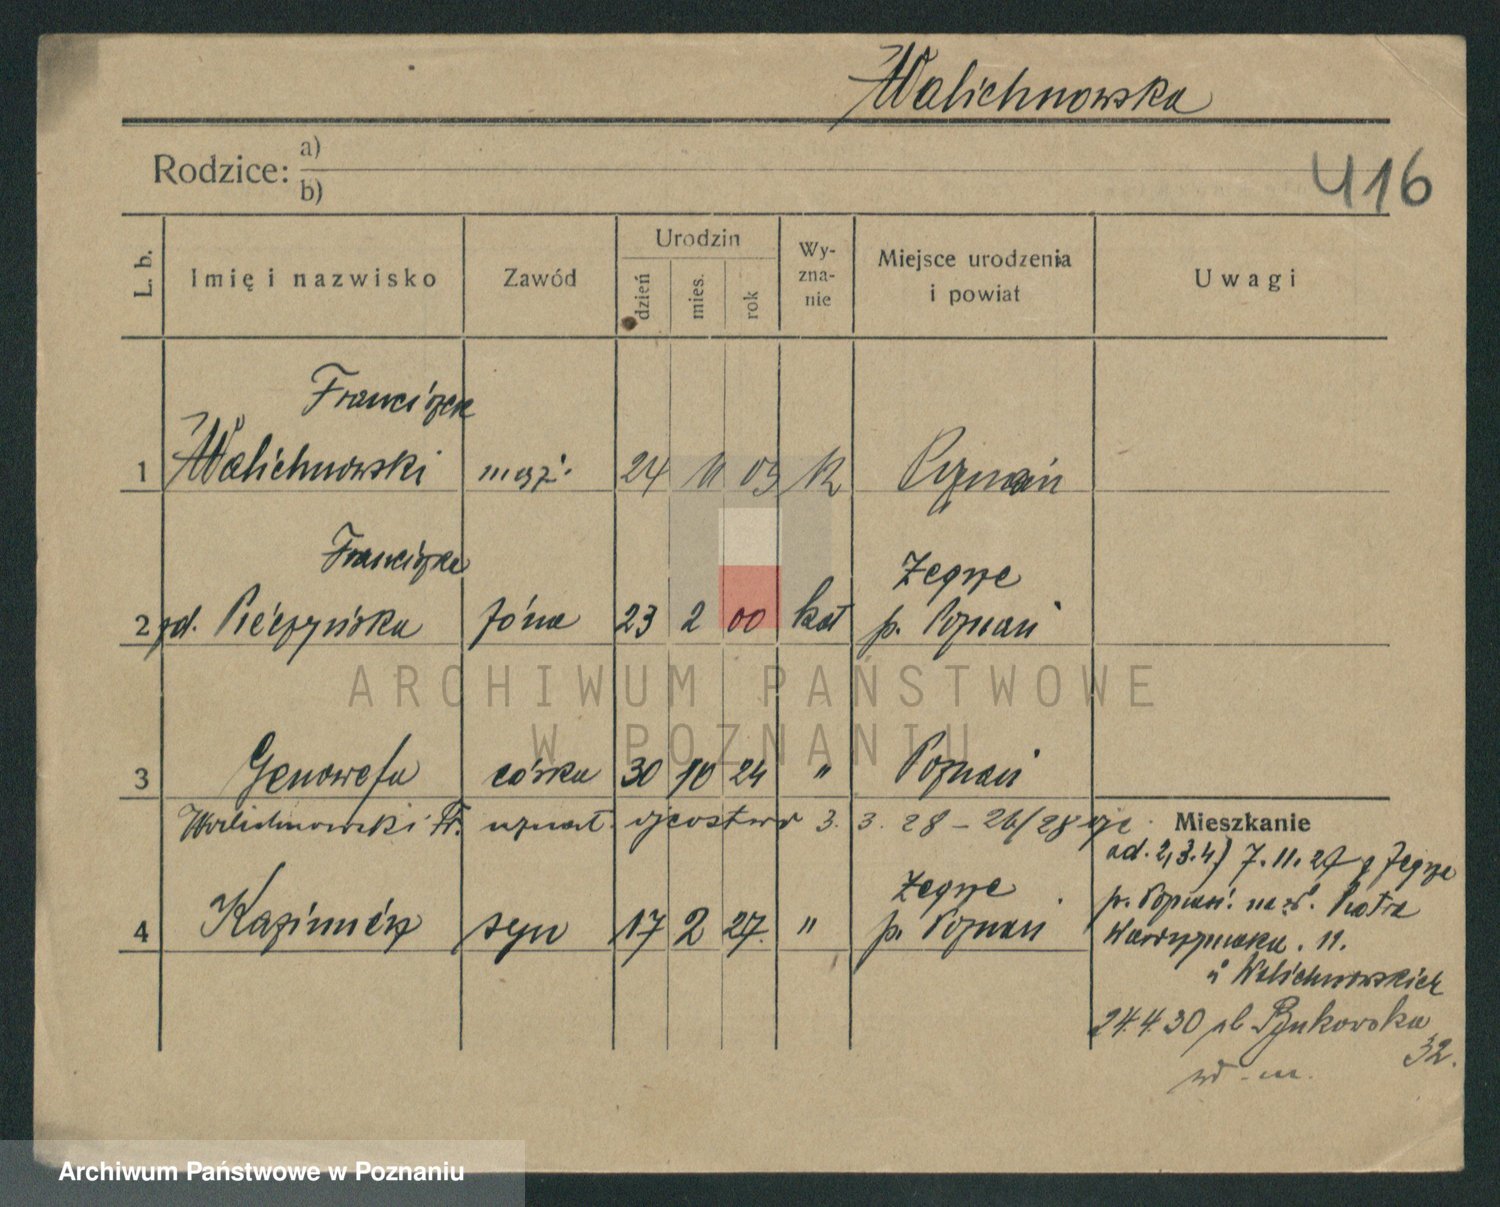 Walichnowska
Rodzice: a)
b)
416
L. b.
Imię i nazwisko
Zawód
Urodzin
dzień
mies.
rok
Wy-
zna-
nie
Miejsce urodzenia
i powiat
Uwagi
Franciszek
1 Walichnowski mąż 24 11 03 K Poznań
Franciszka Żegrze
2 zd. Pieczyńska żona 23 2 00 kat p. Poznań
ARCHIWUM PAŃSTWOWE
W POZNANIU
3 Genowefa córka 30 10 24 " Poznań
Walichnowski Fr. uznał ojcostwo 3. 3. 28 - 26/28
Żegrze
4 Kazimierz syn 17 2 27. " p. Poznań
Mieszkanie
ad. 2, 3. 4) 7. 11. 27 z Żegrze
p. Poznań. Piotra
Wawrzyniaka. 11.
u Walichnowskich
24.4.30 Bukowska
32.
Archiwum Państwowe w Poznaniu